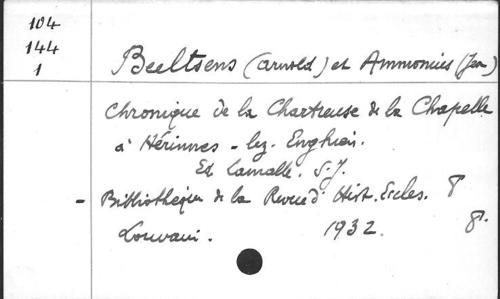 104
144
1
Beeltsens (Arnold) et Ammonius (Jea)
Chronique de la Chartreuse de la Chapelle
à Hérinnes - lez - Enghien.
Ed Lamalle. S. J.
- Bibliothèque de la Revue d' Hist. Eccles. 8
Louvain. 1932. 8.